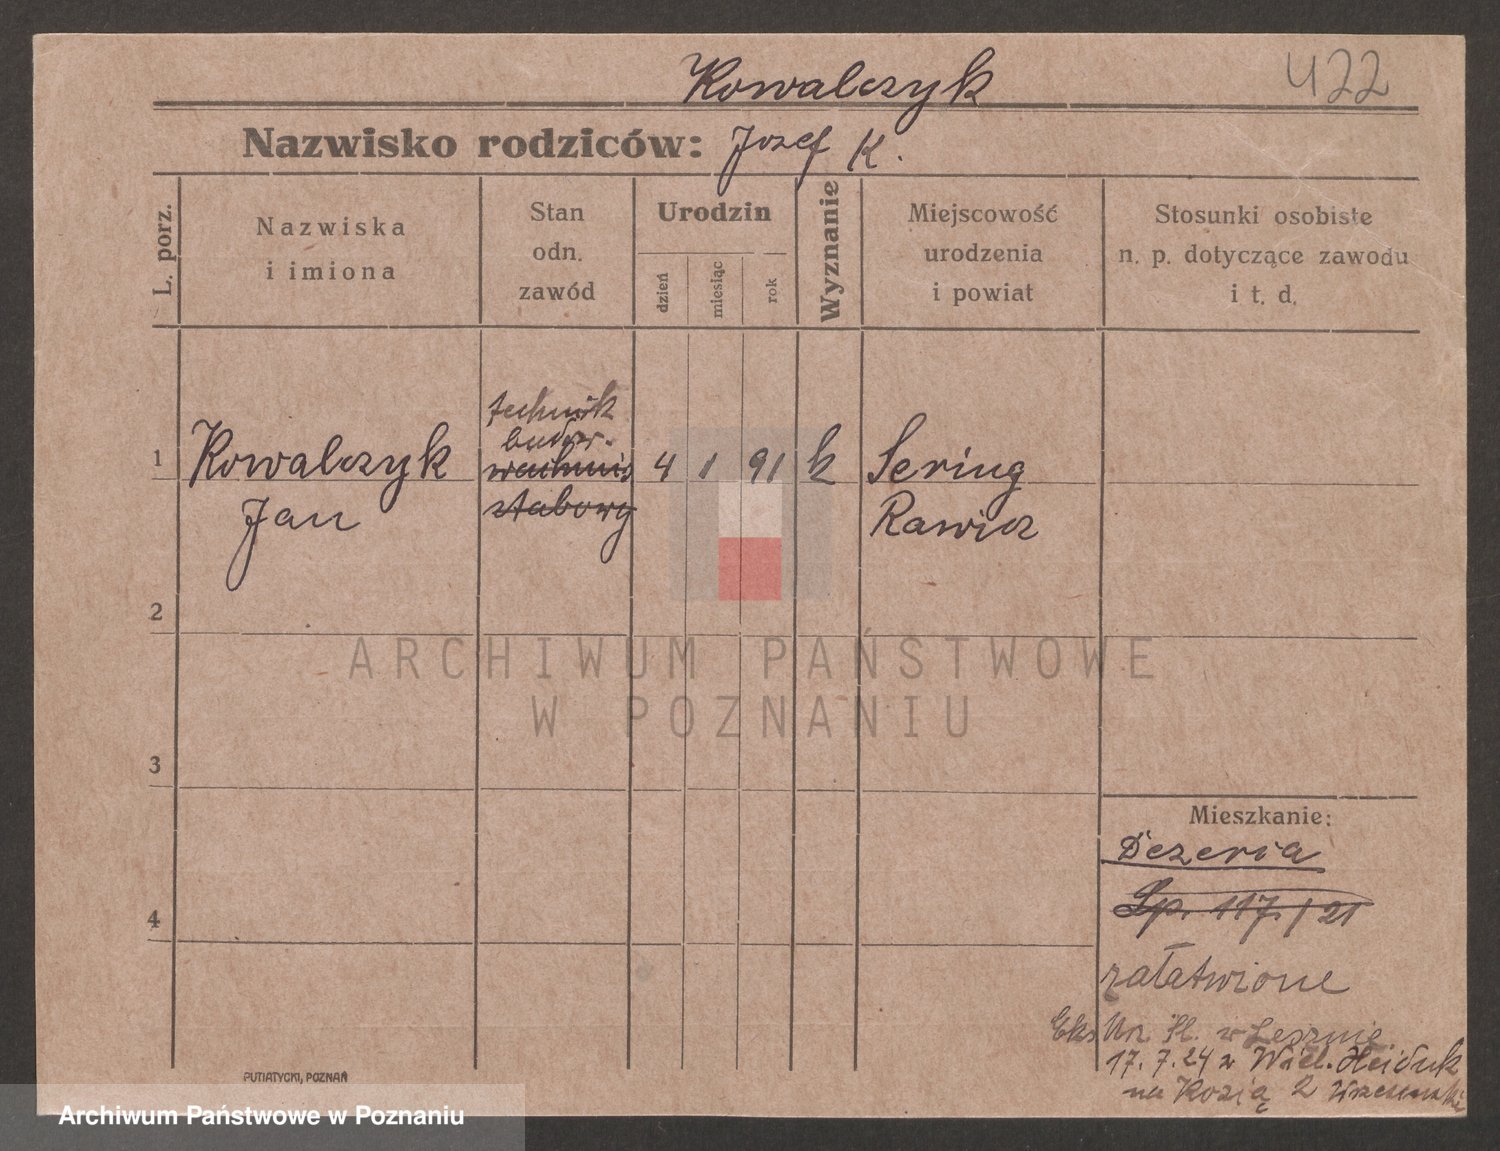 Kowalczyk
422
Nazwisko rodziców: Jozef K.
L. porz.
Nazwiska
i imiona
Stan
odn.
zawód
Urodzin
dzień
miesiąc
rok
Wyznanie
Miejscowość
urodzenia
i powiat
Stosunki osobiste
n. p. dotyczące zawodu
i t. d.
technik
budow.
1 Kowalczyk wachmis 4 1 91 k Sering
Jan stabowy Rawicz
2
ARCHIWUM PAŃSTWOWE
W POZNANIU
3
Mieszkanie:
Dezeria
Lp. 117/21
4
załatwione
Eks. Urz. St. w Lesznie
17. 7. 24 z Wiel. Heiduk
na Kozią 2
PUTIATYCKI, POZNAŃ
Archiwum Państwowe w Poznaniu